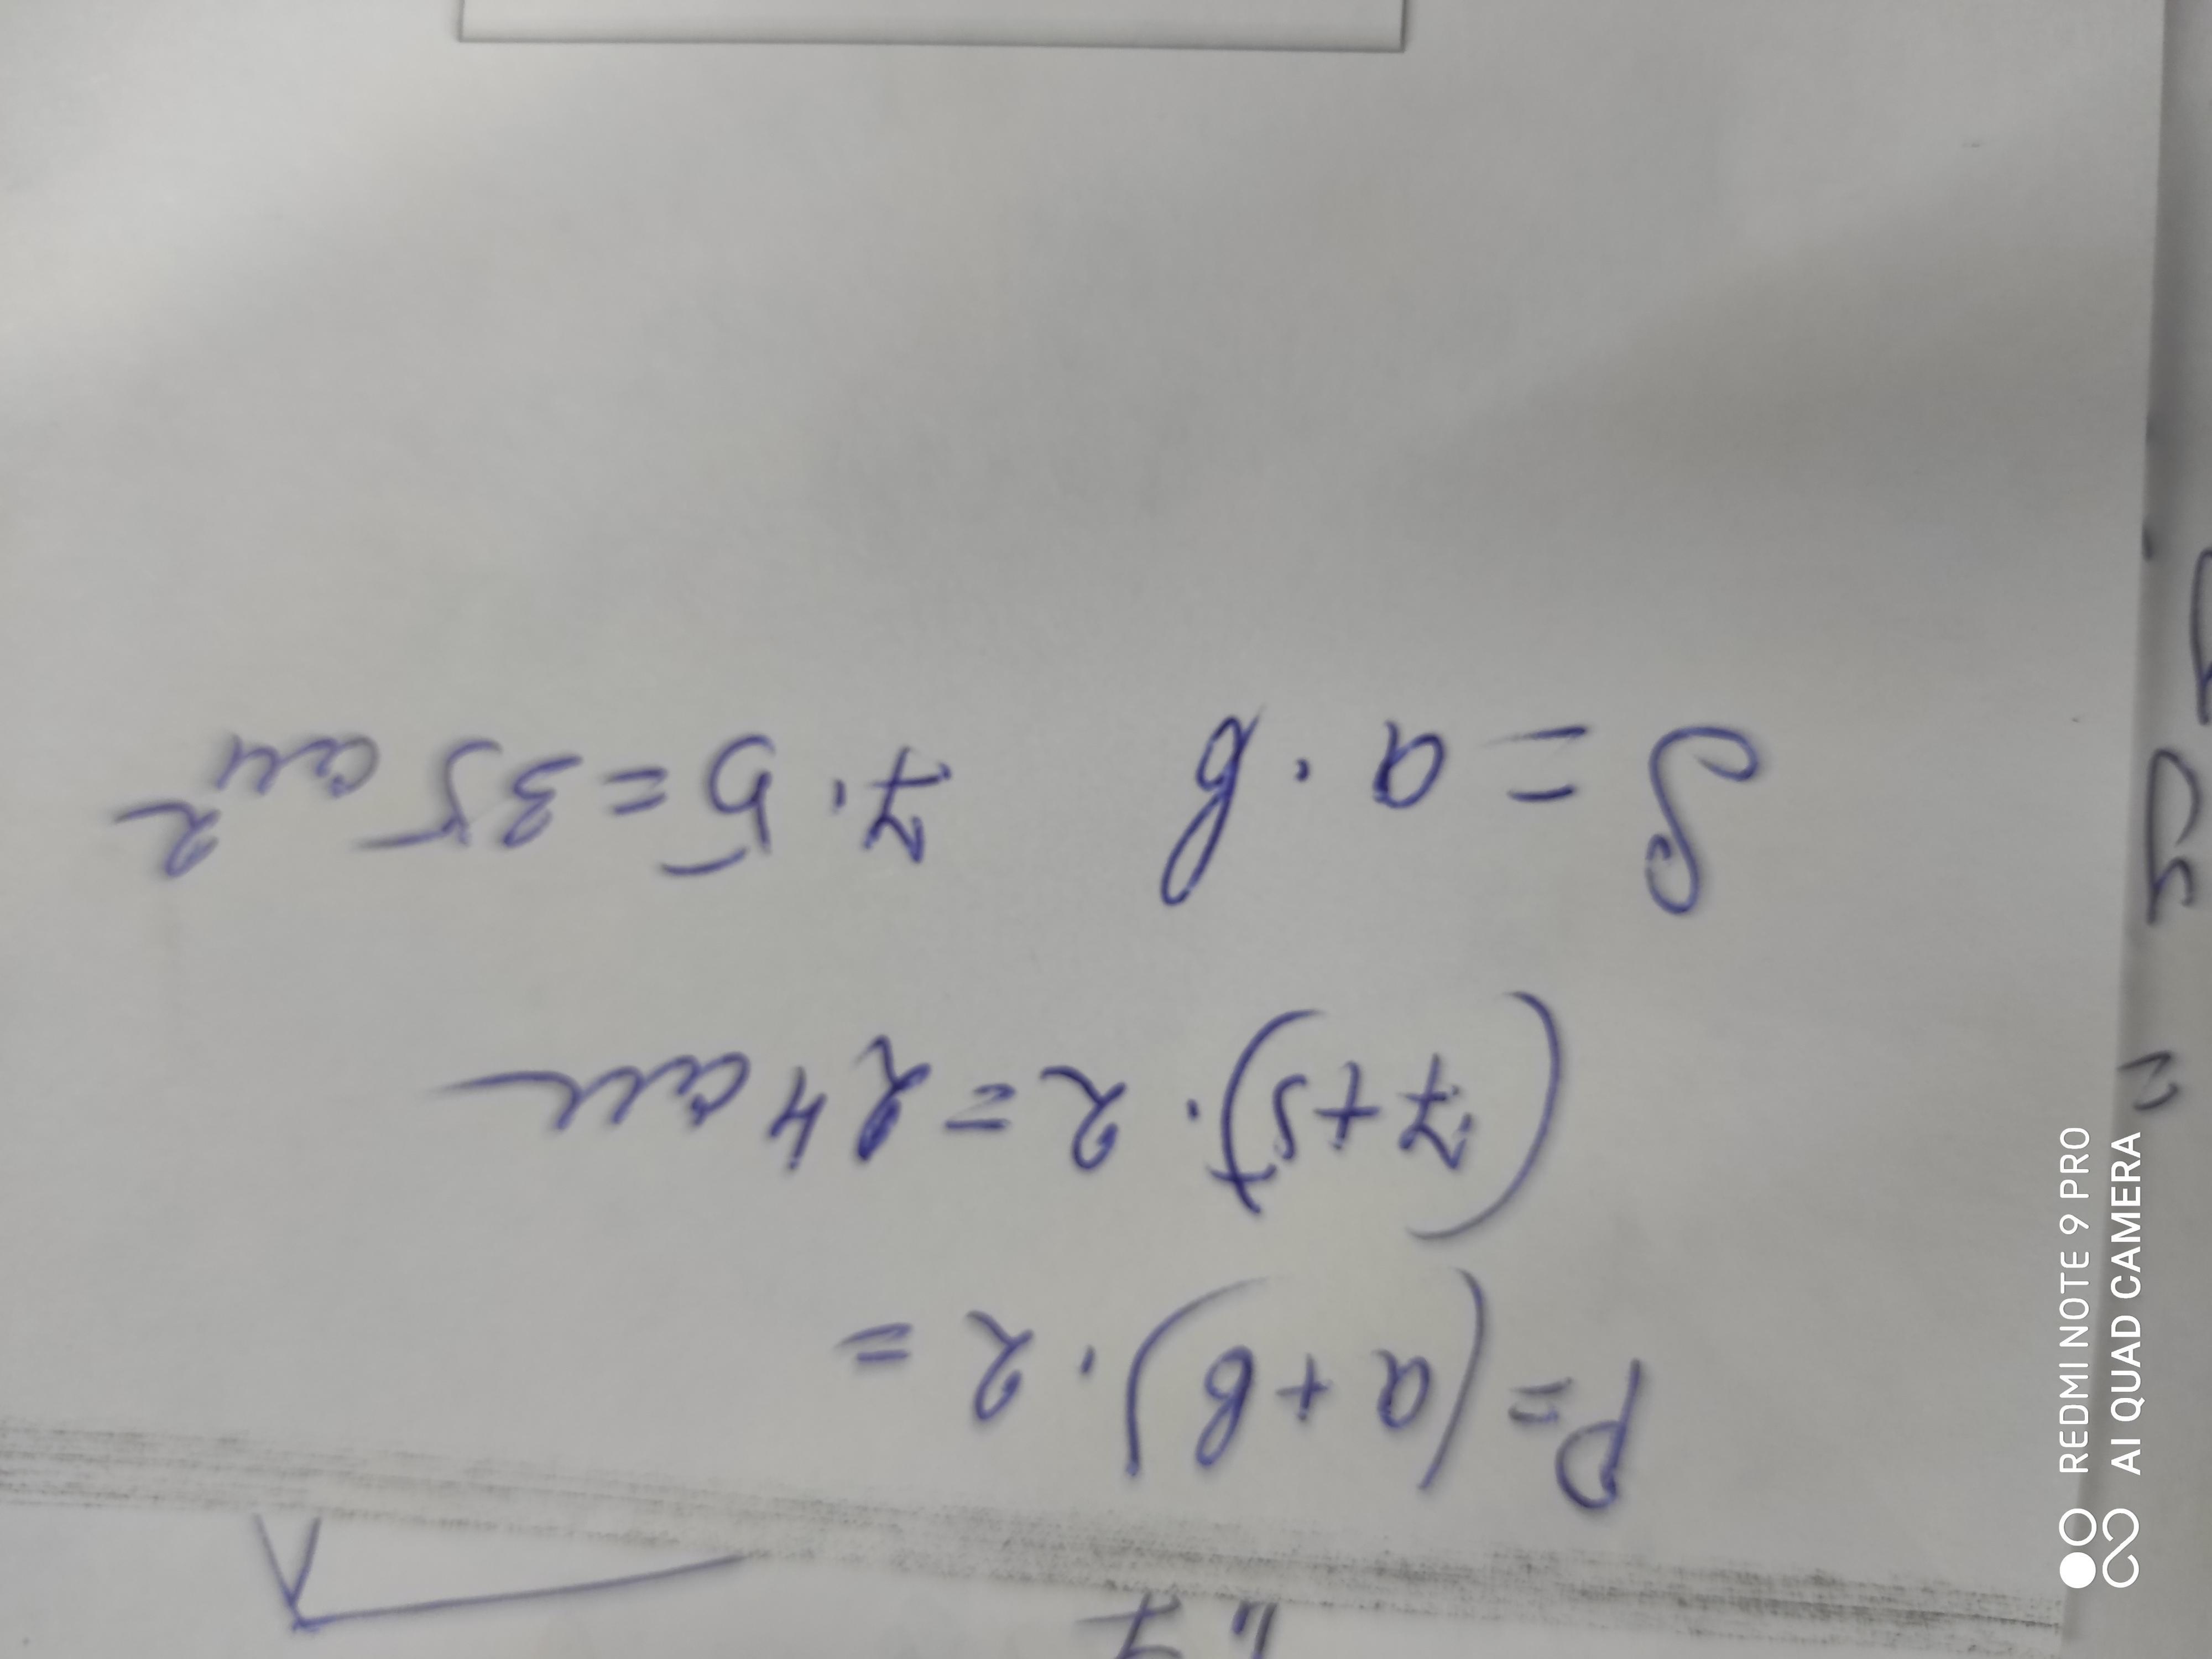 P=(a+b)·2=
(7+5)·2=24см
S=a·b 7·5=35см²
REDMI NOTE 9 PRO
AI QUAD CAMERA